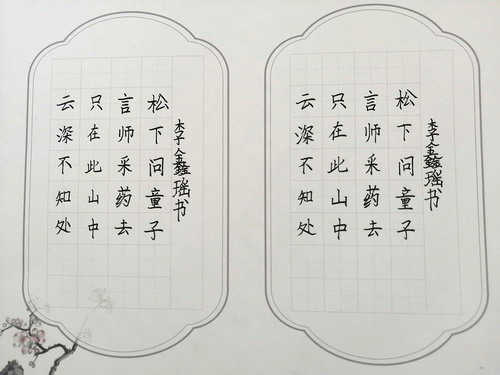 松下问童子
言师采药去
只在此山中
云深不知处
李鑫瑶书
松下问童子
言师采药去
只在此山中
云深不知处
李鑫瑶书